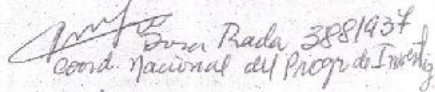 Rosa Prada 3881937
Coord. Nacional del Progr de Investig